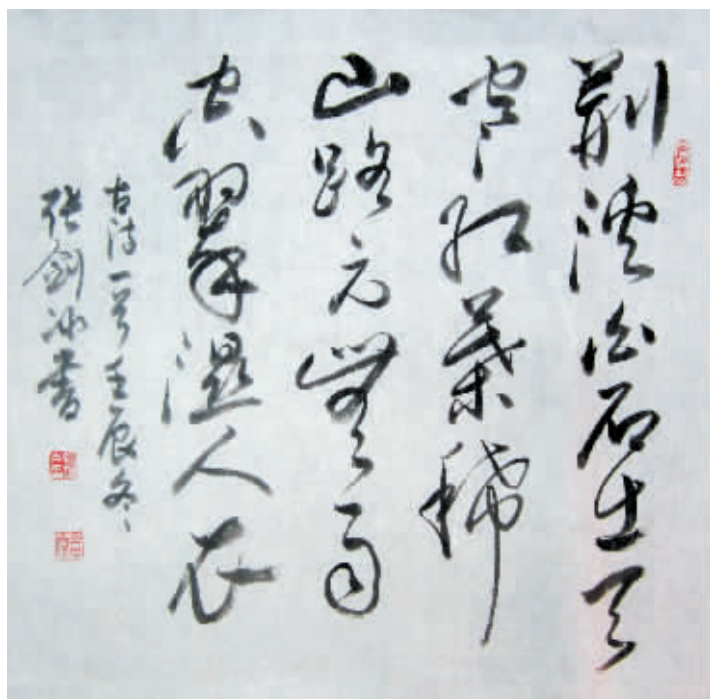 荆溪白石出天
寒红葉稀
山路元無雨
空翠濕人衣
古诗一首壬辰冬
张剑冰書